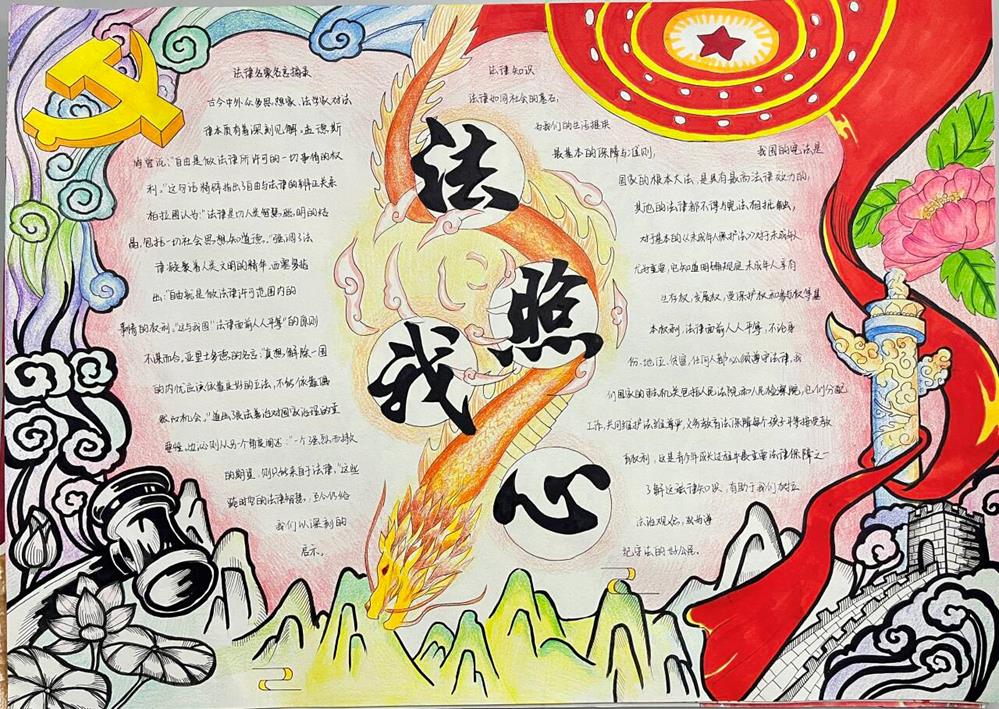 法律名家名言摘录
古今中外众多思想家、法学家对法
律本质有着深刻见解。孟德斯
鸠曾说:"自由是做法律所许可的一切事情的权
利。"这句话精辟指出了自由与法律的辩正关系
柏拉图认为:"法律是功人类智慧,聪明的结
晶,包括一切社会思想和道德。"强调了法
律凝聚着人类文明的精华。西塞罗指
出:"自由就是做法律许可范围内的
事情的权利。"这与我国"法律面前人人平等"的原则
不谋而合。亚里士多德的名言:"真想解除一国
的内忧应该依靠良好的立法,不能依靠偶
然的机会。"道出了法
对国家治理的重
要性。边沁则从另个角度阐述:"一个强烈而持久
的期望,则只能来自于法律。"这些
跨时空的法律智慧,至今仍给
我们以深刻的
启示。
法照我心
法律知识
法律如同社会的基石,
为我们的生活提供
最基本的保障与准则,
我国的宪法是
国家的根本大法,是具有最高法律效力的,
其他的法律都不得与宪法相抵触,
对于基本的《未成年人保护法》对于未成年人
尤为重要,它知道明确规定未成年人享有
生存权、发展权、受保护权和参与权等基
本权利,法律面前人人平等,不论身
份、地位、贫富,任何人都必须遵守法律,我
们国家的司法机关包括人民法院和人民检察院,它们分配
工作,共同维护法律尊严,义务教育法保障每个孩子平等接受教
育权利,这是青少年成长过程中最重要法律保障之一
了解这些法律知识,有助于我们树立
法治观念,成为遵
纪守法的好公民。